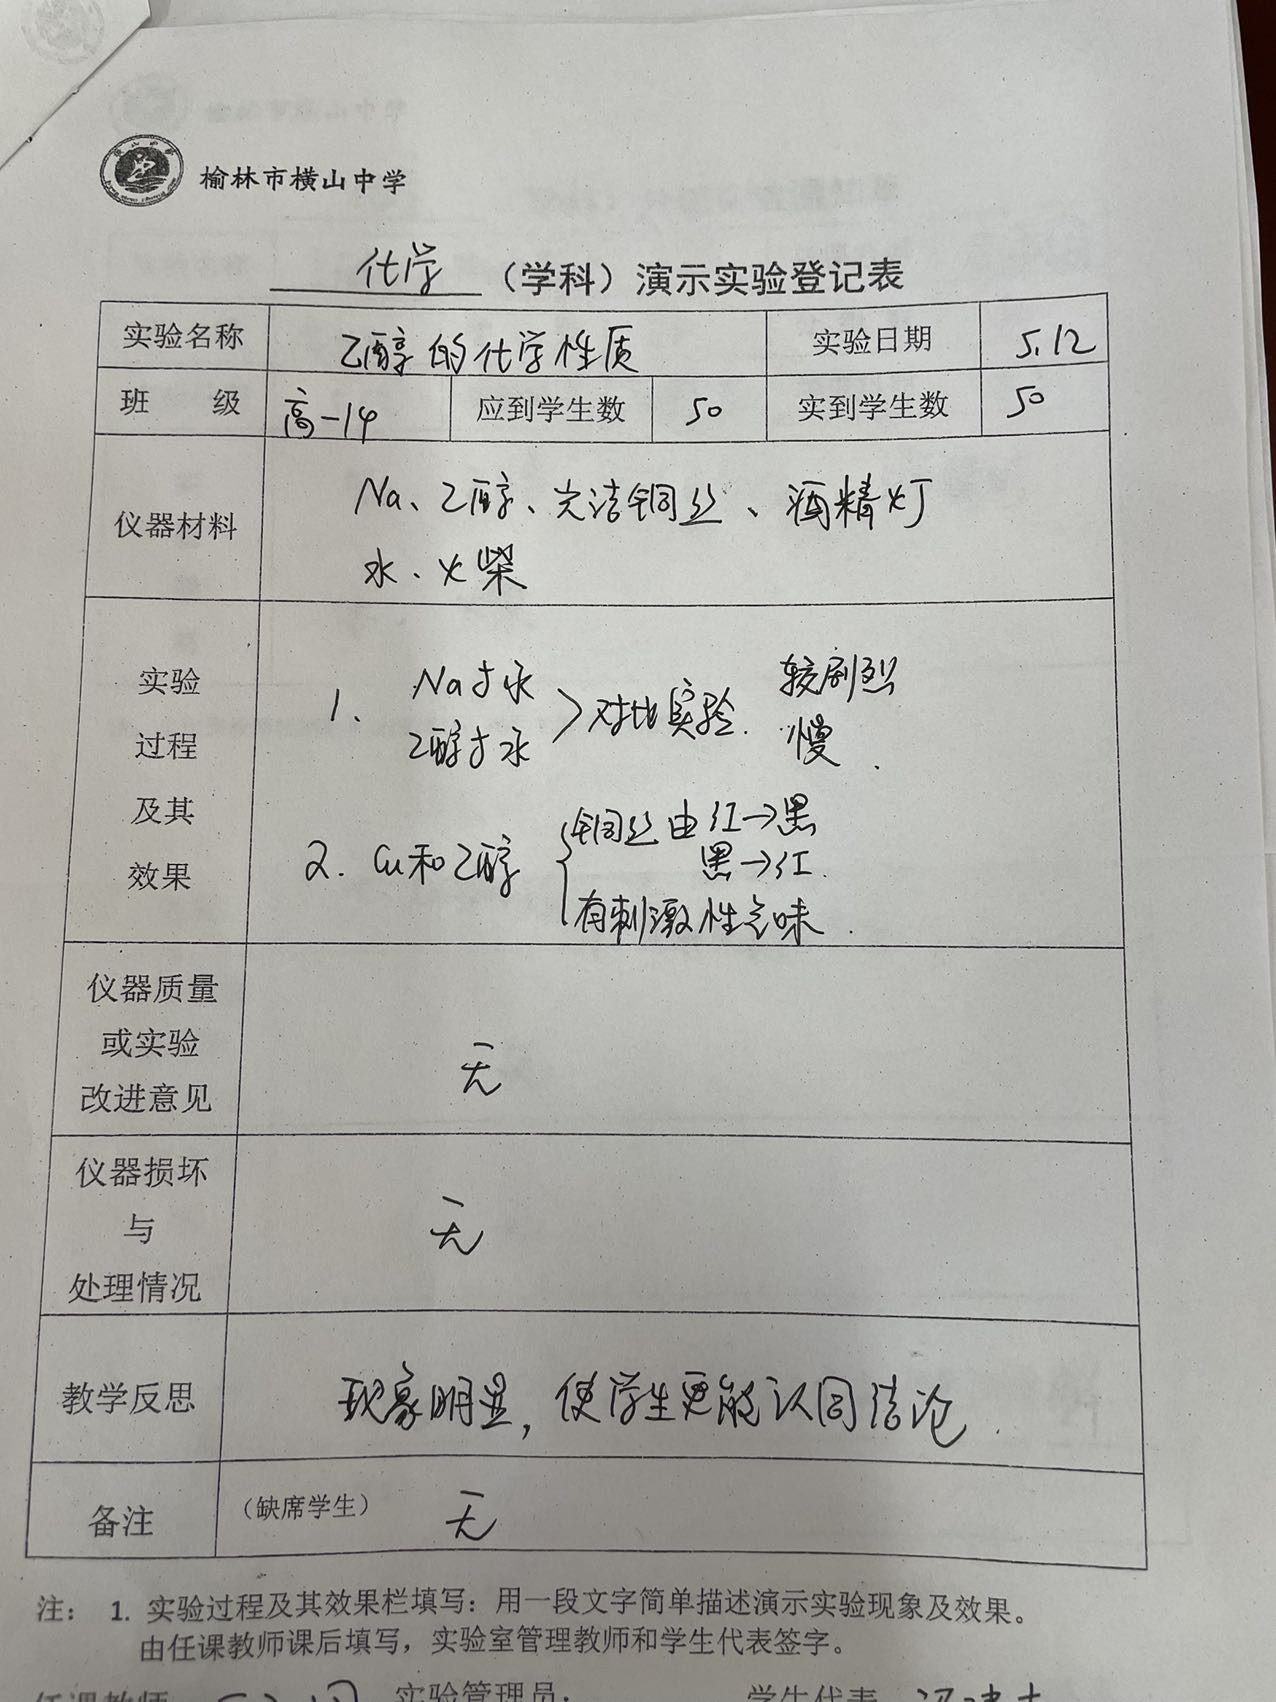 榆林市横山中学
化学（学科）演示实验登记表
实验名称 乙醇的化学性质 实验日期 5.12
班 级 高一14 应到学生数 50 实到学生数 50
仪器材料
Na、乙醇、光洁铜丝、酒精灯
水、火柴
实验
过程
及其
效果
1. Na与水 较剧烈
>对比实验.
乙醇与水 慢.
2. Cu和乙醇 铜丝由红→黑
黑→红.
有刺激性气味.
仪器质量
或实验
改进意见
无
仪器损坏
与
处理情况
无
教学反思 现象明显，使学生更能认同结论.
备注 （缺席学生） 无
注： 1. 实验过程及其效果栏填写：用一段文字简单描述演示实验现象及效果。
由任课教师课后填写，实验室管理教师和学生代表签字。
任课教师 实验管理员： 学生代表